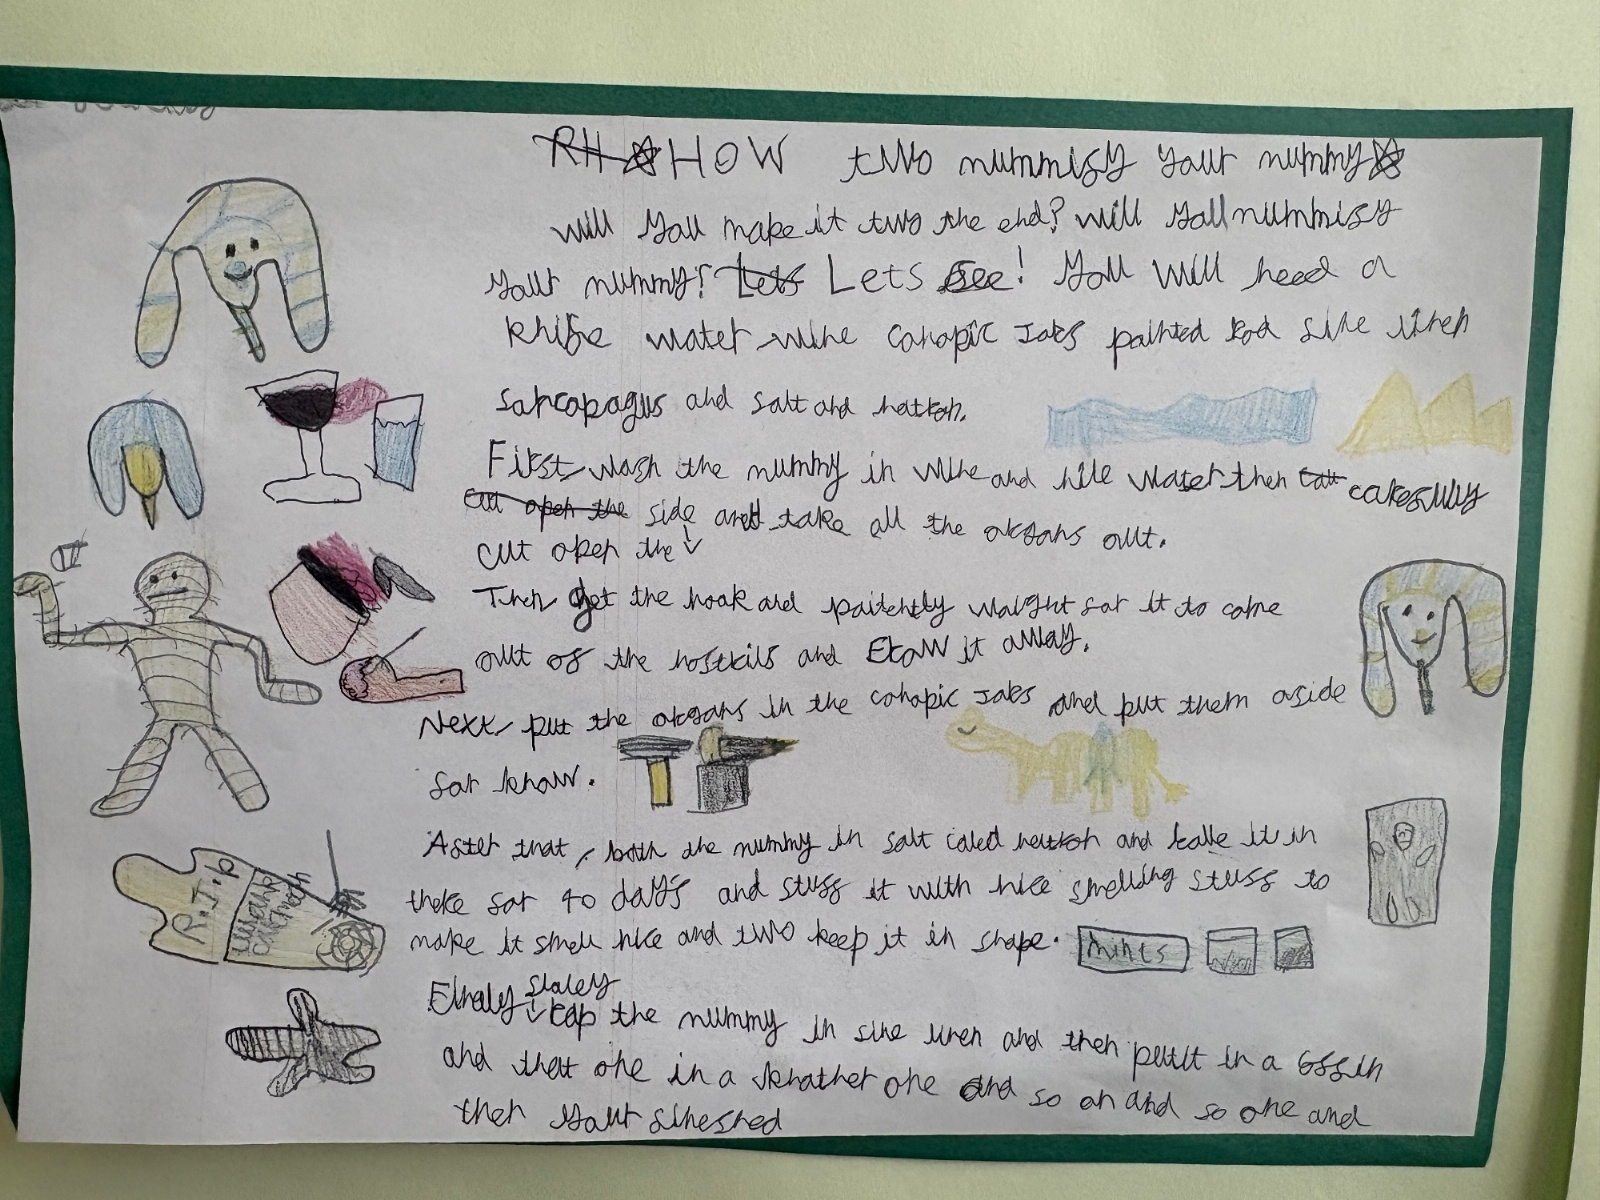 HOW two mummisy your mummy
will you make it two the end? will you mummisy
your mummy? Lets see! you will need a
knife water wine canopic Jars painted rod fine linen
sarcopagus and salt and natron.
First, wash the mummy in wine and nile water then carefully
cut open the side and take all the organs out.
Then get the hook and paitently waight for it to come
out of the nostrils and throw it away.
Next, put the organs in the canopic Jars and put them aside
for know.
After that, both the mummy in salt caled neutron and leave it in
there for 40 days and stuff it with nice smelling stuff to
make it smell nice and two keep it in shape.
mints
R.I.P
Finaly slaley rap the mummy in fine linen and then putit in a coffin
and that one in a another one and so on and so one and
then your fineshed